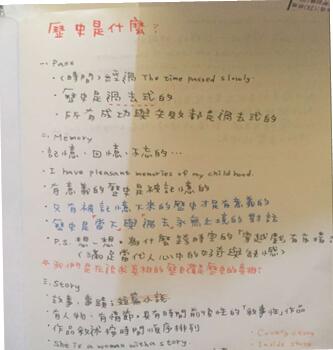 歷史是什麼?
一. Pass
·(時間)經過 The time passed slowly.
·歷史是過去式的
·所有成功與失敗都是過去式的
二. Memory
·記憶、回憶、不忘的…
·I have pleasant memories of my childhood.
·有意義的歷史是被記憶的
·只有被記憶下來的歷史才是有意義的
·歷史是"當天"與"過去"永無止境的對話
·P.S. 想一想·為什麼 "穿越劇"
(滿足當代人心中的好奇與
三. Story
·故事、事蹟、短篇小說
·有人物、有情節、具有時間前後性的"敘事性"作品
·作品敘述按時間順序排列
·She is a woman with a story
·Country story
·Inside story